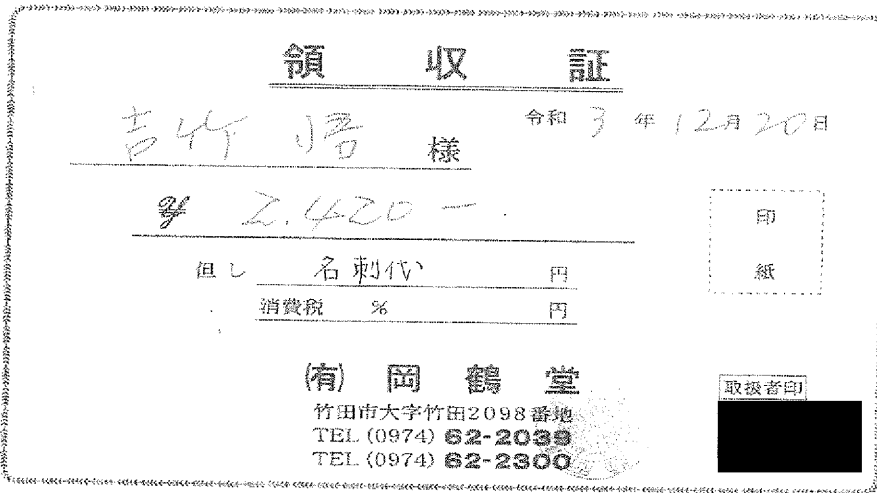 領収証
吉竹 悟 様
令和 3 年 12月 20日
¥ 2.420 ー.
但し 名刺代 円
消費税 % 円
印
紙
(有) 岡鶴堂
竹田市大字竹田2098番地
TEL (0974) 62-2039
TEL (0974) 62-2300
取扱者印